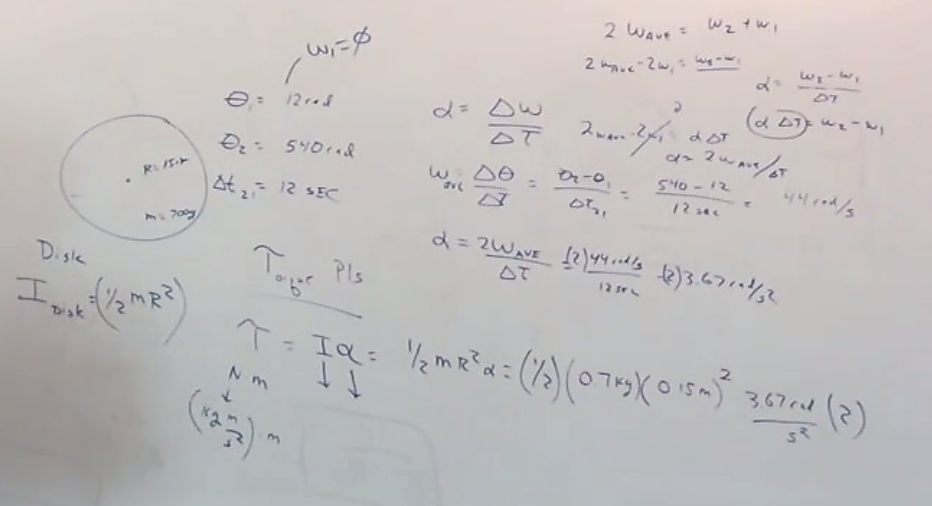 ω₁ = φ
θ₁ = 12 rad
θ₂ = 540 rad
Δt₂₁ = 12 SEC
m = 700g
Disk
I Disk = (1/2 mR²)
2 ωAVE = ω₂ + ω₁
2ωAVE - 2ω₁ = ω₂ - ω₁
α = (ω₂ - ω₁)/ΔT
(α ΔT) = ω₂ - ω₁
α = Δω/ΔT
2ωAVE - 2ω₁ = α ΔT
α = 2ωAVE/ΔT
ωave = Δθ/ΔT = (θ₂ - θ₁)/Δt₂₁ = (540 - 12)/12 sec = 44 rad/s
α = 2ωAVE/ΔT = (2)44 rad/s / 12 sec = (2)3.67 rad/s²
Torque Pls
τ = Iα = 1/2 mR²α = (1/2)(0.7kg)(0.15m)² 3.67 rad/s² (2)
N m
(kg m/s²) · m